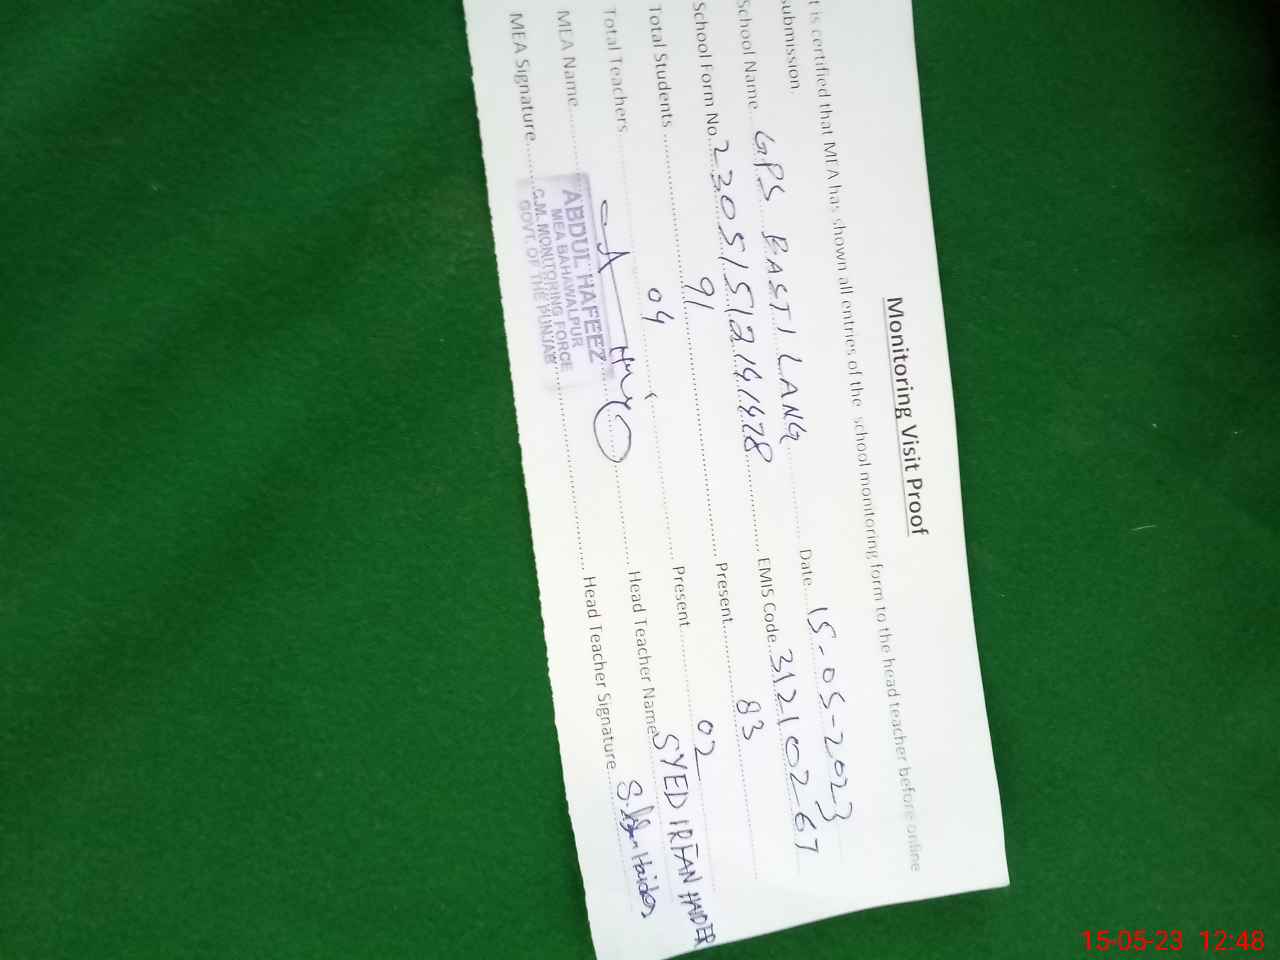 Monitoring Visit Proof
t is certified that MEA has shown all entries of the school monitoring form to the head teacher before online
submission.
School Name... GPS BASTI LANG ... Date... 15-05-2023
School Form No. 23051512141428 ... EMIS Code. 31210267
Total Students ... 91 ... Present... 83
Total Teachers ... 04 ... Present... 02
MEA Name... ... Head Teacher Name SYED IRFAN HAIDER
MEA Signature... ... Head Teacher Signature... S. Irfan Haider
ABDUL HAFEEZ
MEA BAHAWALPUR
C.M. MONITORING FORCE
GOVT. OF THE PUNJAB
15-05-23 12:48